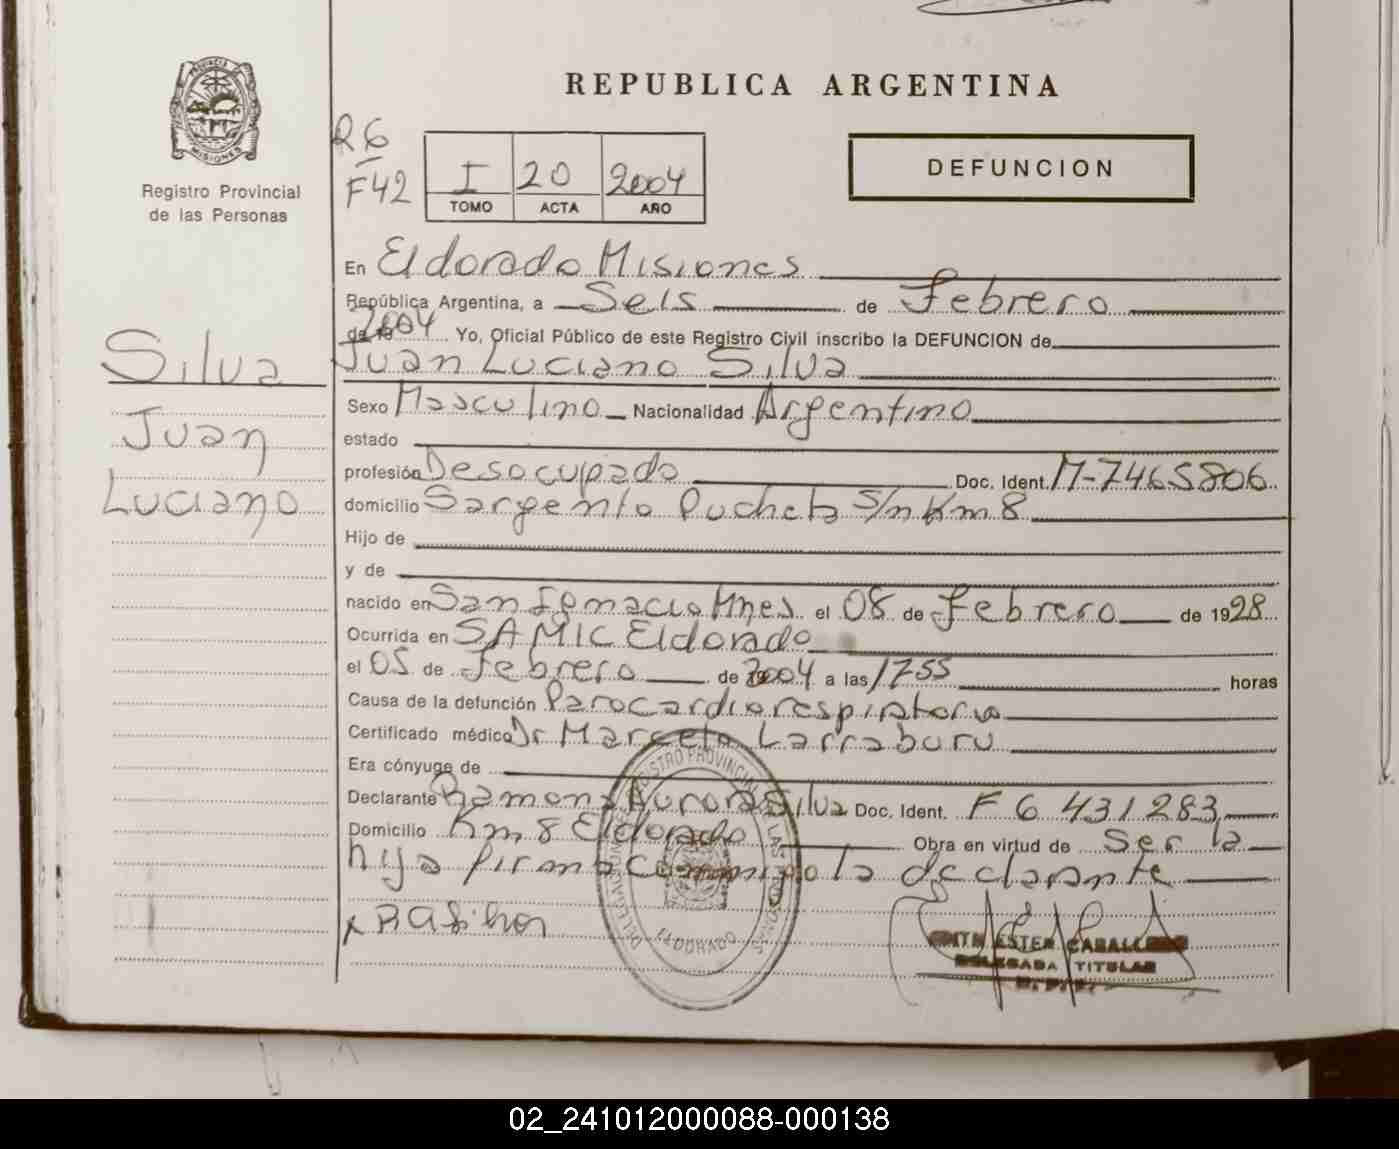 REPUBLICA ARGENTINA
PROVINCIA DE
MISIONES
Registro Provincial
de las Personas
R6
F42
I 20 2004
TOMO ACTA AÑO
DEFUNCION
En Eldorado Misiones
República Argentina, a Seis de Febrero
de 2004 Yo, Oficial Público de este Registro Civil inscribo la DEFUNCION de
Juan Luciano Silva
Silva
Juan
Luciano
Sexo Masculino Nacionalidad Argentino
estado
profesión Desocupado Doc. Ident. M-7465806
domicilio Sargento Pucheta S/n Km 8
Hijo de
y de
nacido en San Ignacio Mnes el 08 de Febrero de 1928
Ocurrida en SAMIC Eldorado
el 05 de Febrero de 2004 a las 1755 horas
Causa de la defunción Parocardiorespiratorio
Certificado médico Dr Marcelo Larraburu
Era cónyuge de
Declarante Ramona Aurora Silva Doc. Ident. F 6 431 283
Domicilio Km 8 Eldorado Obra en virtud de Ser la
hija firma conmigo la declarante
ESTER CABALLERO
DELEGADA TITULAR
ELDORADO
02_241012000088-000138